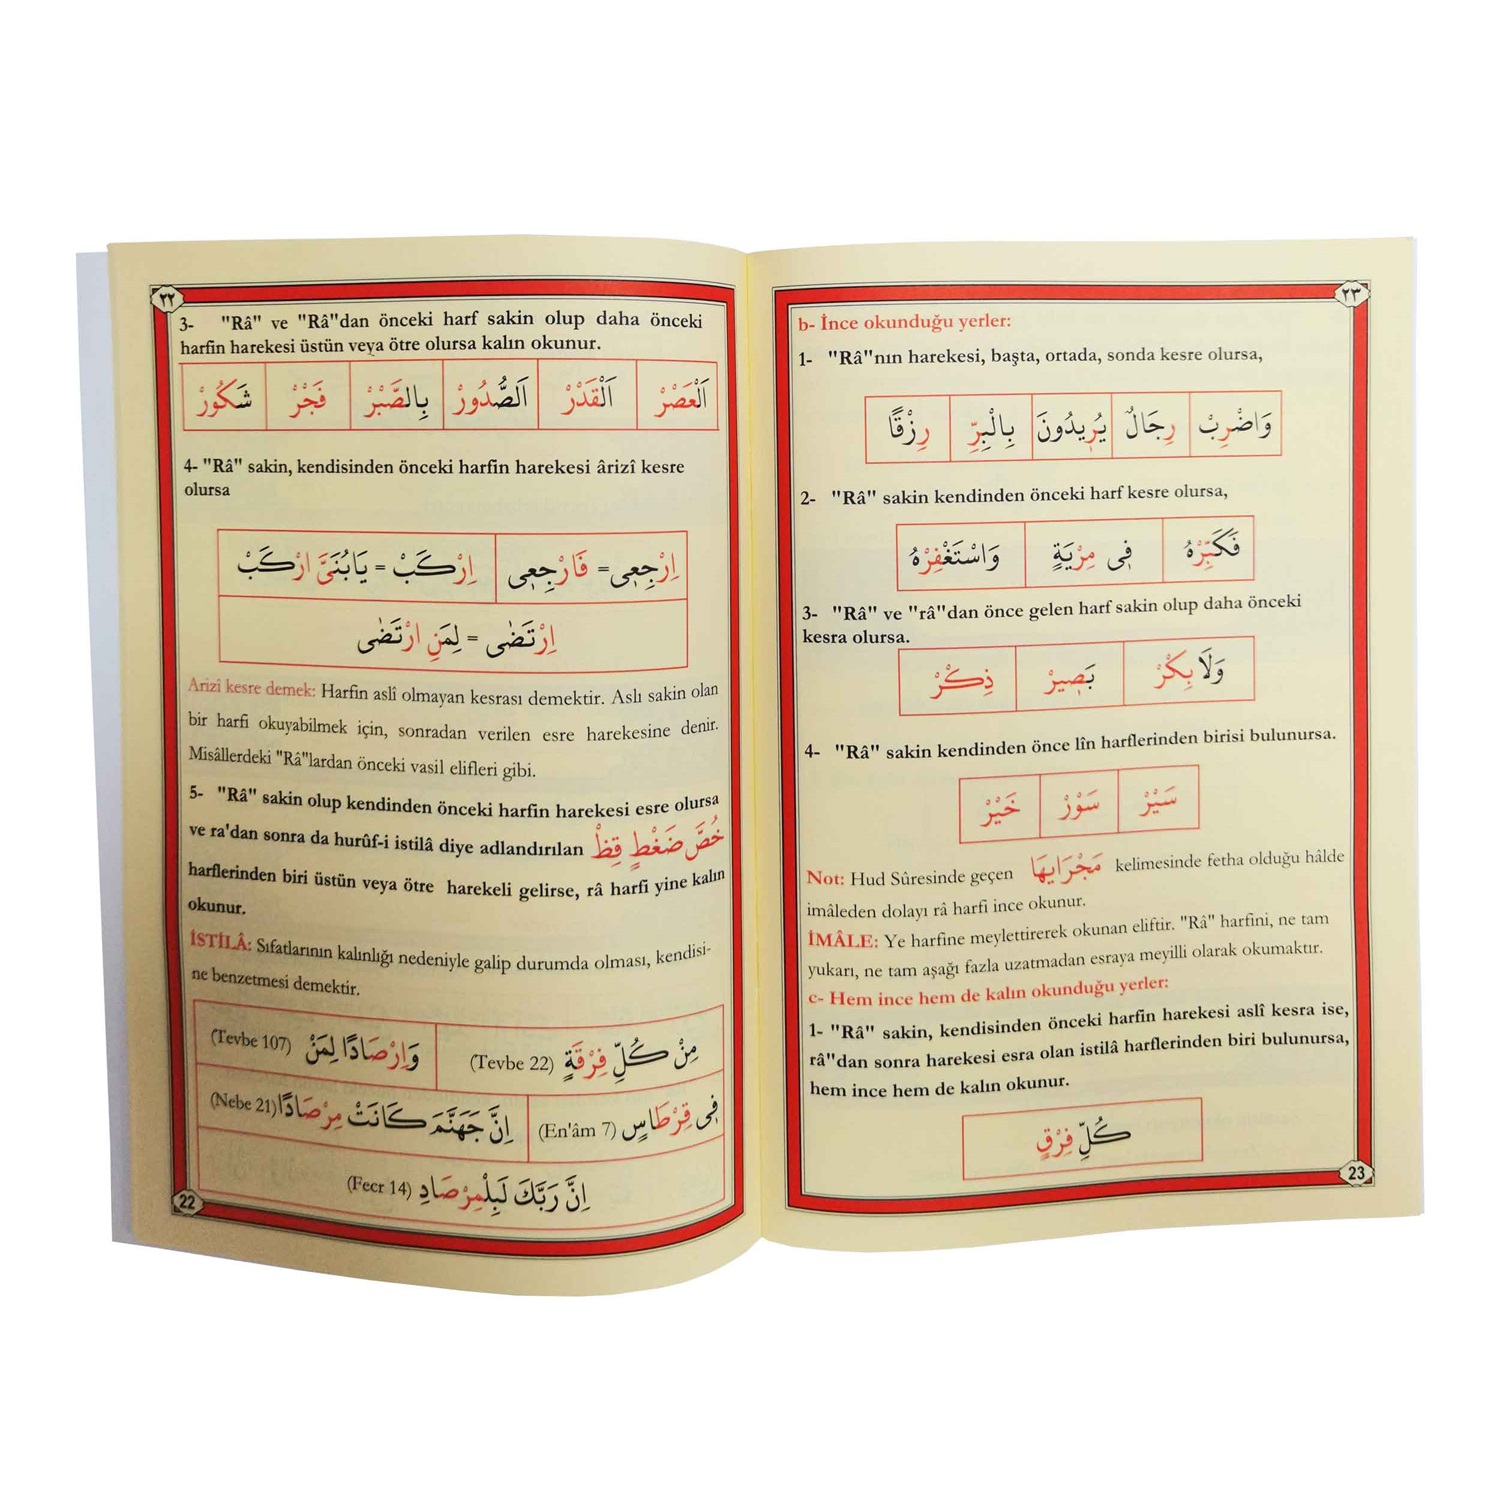 ٢٢
3- "Râ" ve "Râ"dan önceki harf sakin olup daha önceki
harfin harekesi üstün veya ötre olursa kalın okunur.
اَلْعَصْرْ اَلْقَدْرْ اَلصُّدُورْ بِالصَّبْرْ فَجْرْ شَكُورْ
4- "Râ" sakin, kendisinden önceki harfin harekesi ârizî kesre
olursa
اِرْجِعِي= فَارْجِعِي اِرْكَبْ = يَابُنَيَّ ارْكَبْ
اِرْتَضٰى = لِمَنِ ارْتَضٰى
Arizî kesre demek: Harfin aslî olmayan kesrası demektir. Aslı sakin olan
bir harfi okuyabilmek için, sonradan verilen esre harekesine denir.
Misâllerdeki "Râ"lardan önceki vasil elifleri gibi.
5- "Râ" sakin olup kendinden önceki harfin harekesi esre olursa
ve ra'dan sonra da hurûf-i istilâ diye adlandırılan خُصَّ ضَغْطٍ قِظْ
harflerinden biri üstün veya ötre harekeli gelirse, râ harfi yine kalın
okunur.
İSTİLÂ: Sıfatlarının kalınlığı nedeniyle galip durumda olması, kendisi-
ne benzetmesi demektir.
مِنْ كُلِّ فِرْقَةٍ (Tevbe 22) وَاِرْصَادًا لِمَنْ (Tevbe 107)
فِي قِرْطَاسٍ (En'âm 7) اِنَّ جَهَنَّمَ كَانَتْ مِرْصَادًا (Nebe 21)
اِنَّ رَبَّكَ لَبِلْمِرْصَادِ (Fecr 14)
22
٢٣
b- İnce okunduğu yerler:
1- "Râ"nın harekesi, başta, ortada, sonda kesre olursa,
وَاضْرِبْ رِجَالٌ يُرِيدُونَ بِالْبِرِّ رِزْقًا
2- "Râ" sakin kendinden önceki harf kesre olursa,
فَكَبِّرْهُ فِي مِرْيَةٍ وَاسْتَغْفِرْهُ
3- "Râ" ve "râ"dan önce gelen harf sakin olup daha önceki
kesra olursa.
وَلَا بِكْرْ بَصِيرْ ذِكْرْ
4- "Râ" sakin kendinden önce lîn harflerinden birisi bulunursa.
سَيْرْ سَوْرْ خَيْرْ
Not: Hud Sûresinde geçen مَجْرَايهَا kelimesinde fetha olduğu hâlde
imâleden dolayı râ harfi ince okunur.
İMÂLE: Ye harfine meylettirerek okunan eliftir. "Râ" harfini, ne tam
yukarı, ne tam aşağı fazla uzatmadan esraya meyilli olarak okumaktır.
c- Hem ince hem de kalın okunduğu yerler:
1- "Râ" sakin, kendisinden önceki harfin harekesi aslî kesra ise,
râ"dan sonra harekesi esra olan istilâ harflerinden biri bulunursa,
hem ince hem de kalın okunur.
كُلِّ فِرْقٍ
23